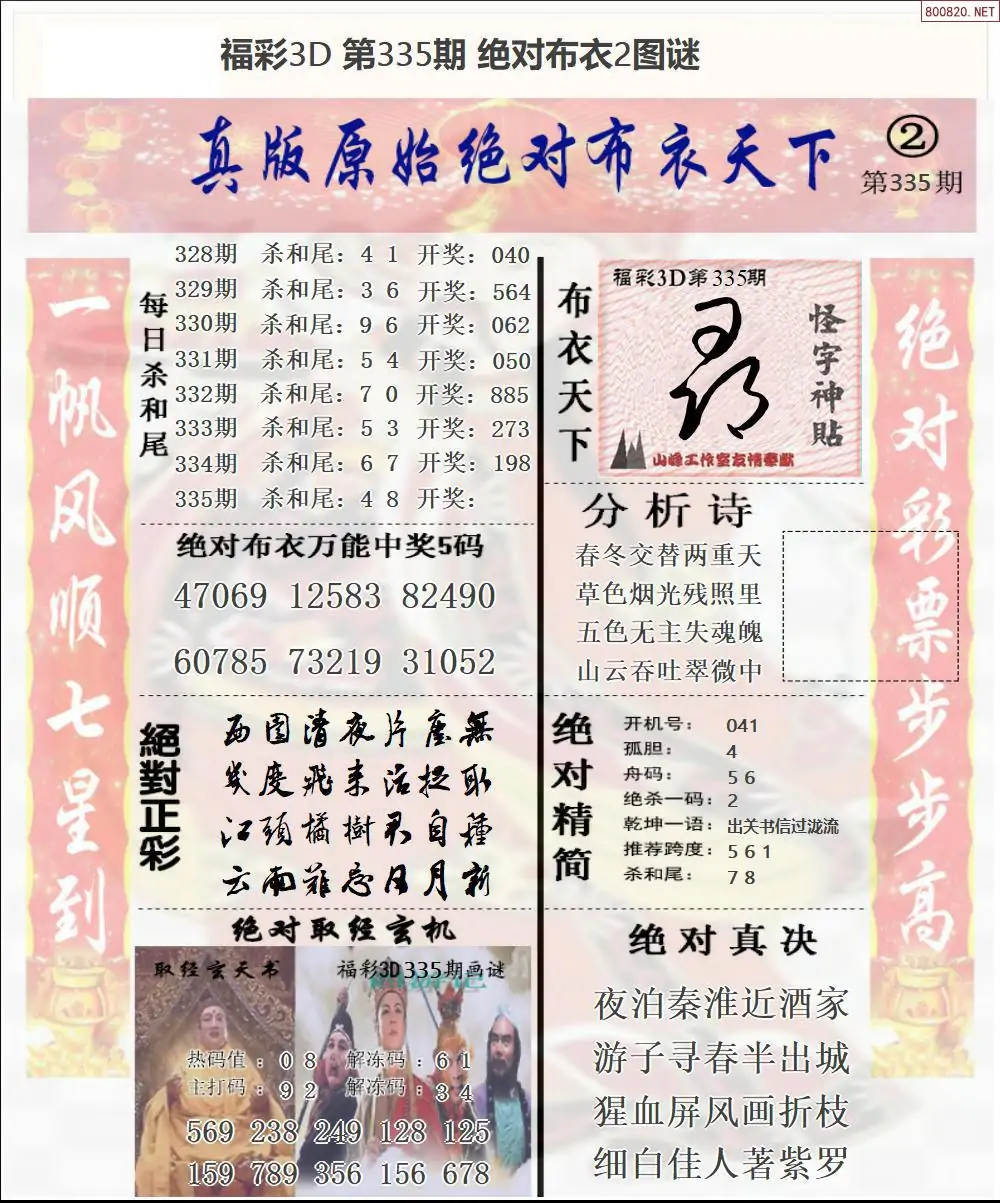 800820.NET
福彩3D 第335期 绝对布衣2图谜
真版原始绝对布衣天下
②
第335期
一帆风顺七星到
每日杀和尾
328期 杀和尾：4 1 开奖：040
329期 杀和尾：3 6 开奖：564
330期 杀和尾：9 6 开奖：062
331期 杀和尾：5 4 开奖：050
332期 杀和尾：7 0 开奖：885
333期 杀和尾：5 3 开奖：273
334期 杀和尾：6 7 开奖：198
335期 杀和尾：4 8 开奖：
绝对布衣万能中奖5码
47069 12583 82490
60785 73219 31052
絕對正彩
西园清夜片塵無
幾度飛来活捉取
江頭橘樹君自種
云南雖忘日月新
绝对取经玄机
取经玄天书
福彩3D335期画谜
热码值：0 8 解冻码：6 1
主打码：9 2 解冻码：3 4
569 238 249 128 125
159 789 356 156 678
布衣天下
福彩3D第335期
怪字神貼
山峰工作室友情奉献
分析诗
春冬交替两重天
草色烟光残照里
五色无主失魂魄
山云吞吐翠微中
绝对精简
开机号：041
孤胆：4
舟码：5 6
绝杀一码：2
乾坤一语：出关书信过泷流
推荐跨度：5 6 1
杀和尾：7 8
绝对真决
夜泊秦淮近酒家
游子寻春半出城
猩血屏风画折枝
细白佳人著紫罗
绝对彩票步步高